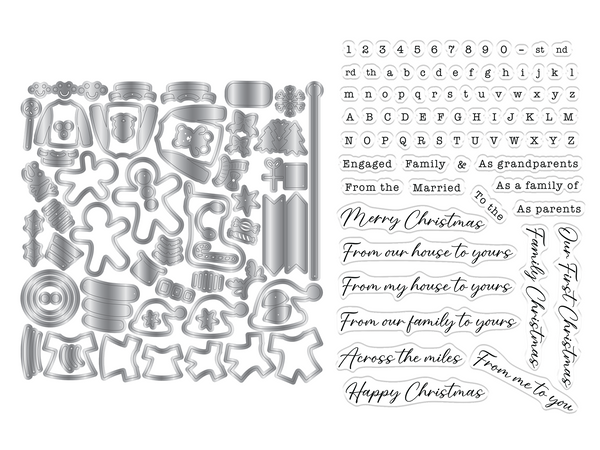 1 2 3 4 5 6 7 8 9 0 - st nd
rd th a b c d e f g h i j k l
m n o p q r s t u v w x y z
A B C D E F G H I J K L M
N O P Q R S T U V W X Y Z
Engaged Family & As grandparents
From the Married As a family of
To the As parents
Merry Christmas
From our house to yours
From my house to yours
From our family to yours
Across the miles
Happy Christmas
From me to you
Family Christmas
Our First Christmas